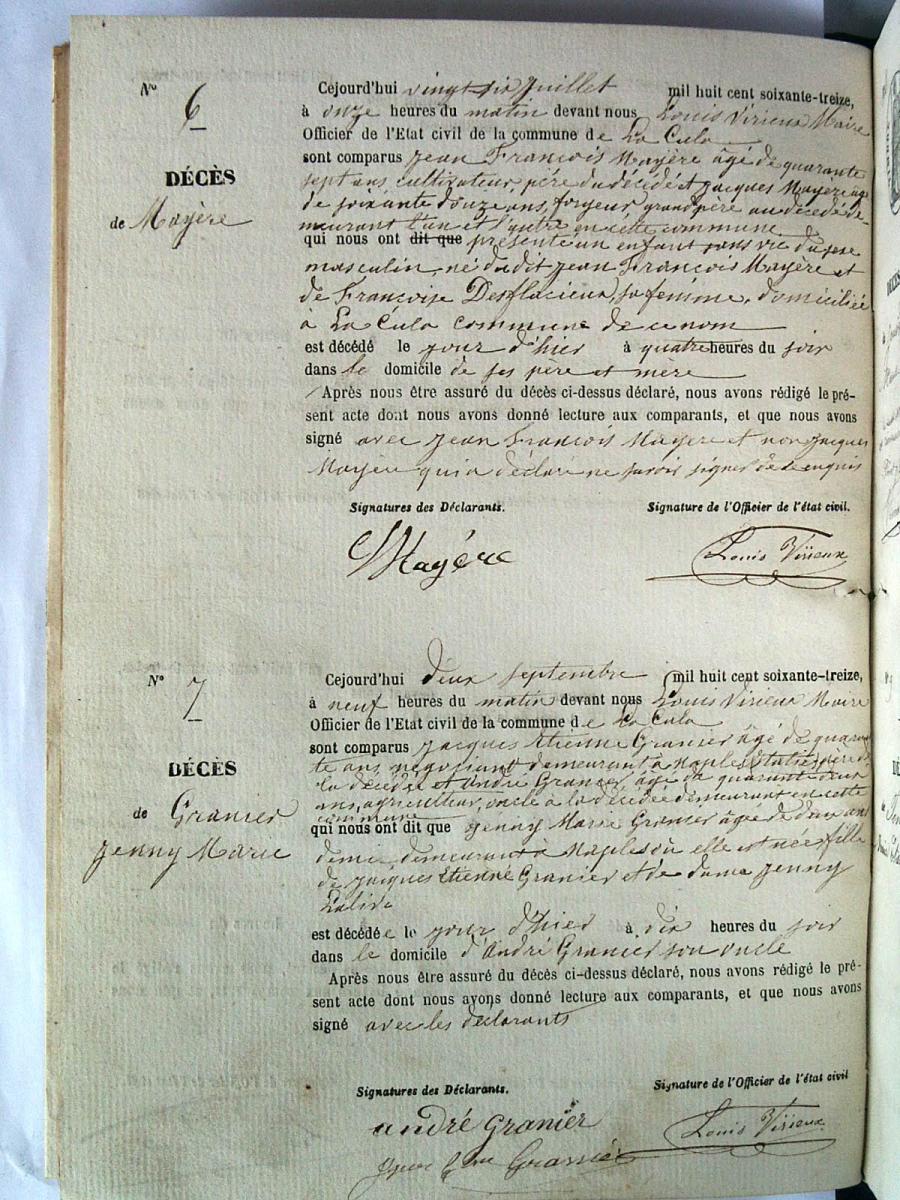 N° 6
DÉCÈS
de Mayère
Cejourd'hui vingt six juillet mil huit cent soixante-treize,
à onze heures du matin devant nous Louis Virieux Maire
Officier de l'Etat civil de la commune de La Cula
sont comparus Jean François Mayère âgé de quarante
sept ans, cultivateur, père du décédé et Jacques Mayère âgé
de soixante douze ans, forgeur, grand père au décédé de-
meurant l'un et l'autre en cette commune
qui nous ont dit que présenté un enfant sans vie du sexe
masculin, né dudit Jean François Mayère et
de Françoise Desflacieux, sa femme, domiciliée
à La Cula commune de ce nom
est décédé le jour d'hier à quatre heures du soir
dans le domicile de ses père et mère
Après nous être assuré du décès ci-dessus déclaré, nous avons rédigé le pré-
sent acte dont nous avons donné lecture aux comparants, et que nous avons
signé avec Jean François Mayère et non Jacques
Mayère qui a déclaré ne savoir signer de ce enquis
Signatures des Déclarants. Signature de l'Officier de l'état civil.
Mayère Louis Virieux
N° 7
DÉCÈS
de Granier
Jenny Marie
Cejourd'hui deux septembre mil huit cent soixante-treize,
à neuf heures du matin devant nous Louis Virieux Maire
Officier de l'Etat civil de la commune de La Cula
sont comparus Jacques Etienne Granier âgé de quaran
te ans négociant demeurant à Naples, Italie, père de
la décédée et André Granier, âgé de quarante deux
ans, agriculteur, oncle à la décédée demeurant en cette
commune
qui nous ont dit que Jenny Marie Granier âgée de deux ans
demie demeurant à Naples où elle est née, fille
de Jacques Etienne Granier et de dame Jenny
est décédée le jour d'hier à dix heures du soir
dans le domicile d'André Granier son oncle
Après nous être assuré du décès ci-dessus déclaré, nous avons rédigé le pré-
sent acte dont nous avons donné lecture aux comparants, et que nous avons
signé avec les déclarants
Signatures des Déclarants. Signature de l'Officier de l'état civil
andré Granier Louis Virieux
Granier